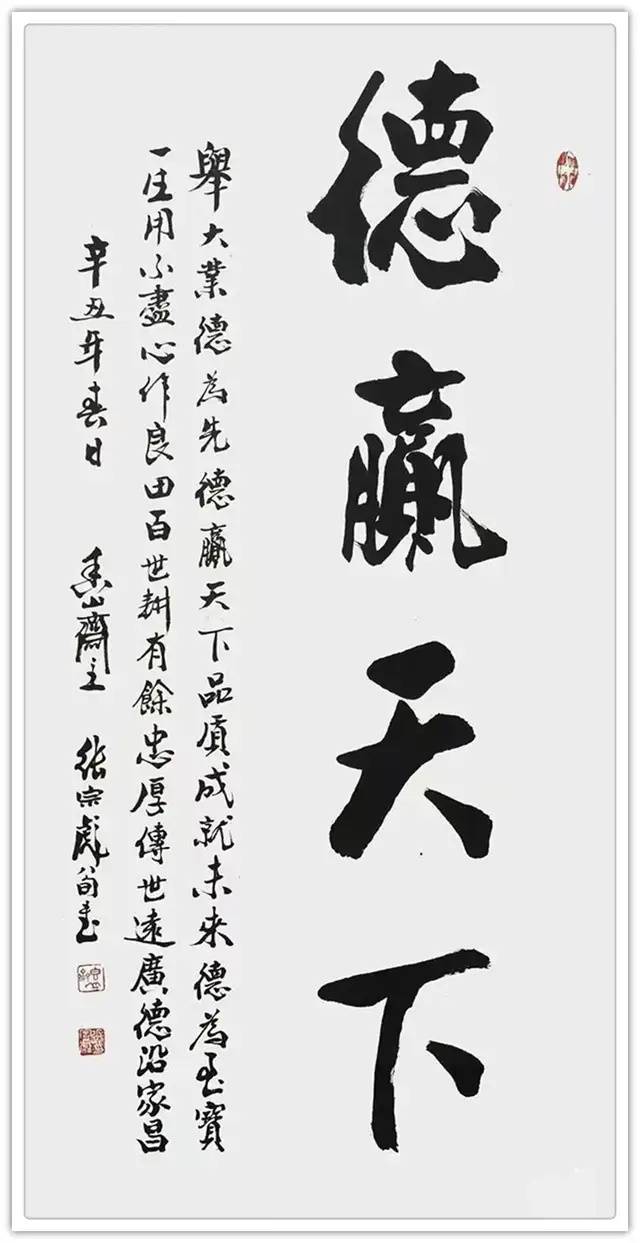 德贏天下
舉大業德為先德贏天下品質成就未來德為至寶
一生用不盡心作良田百世耕有餘忠厚傳世遠廣德沿家昌
辛丑年春日 香山齋主 张宗彪翁書